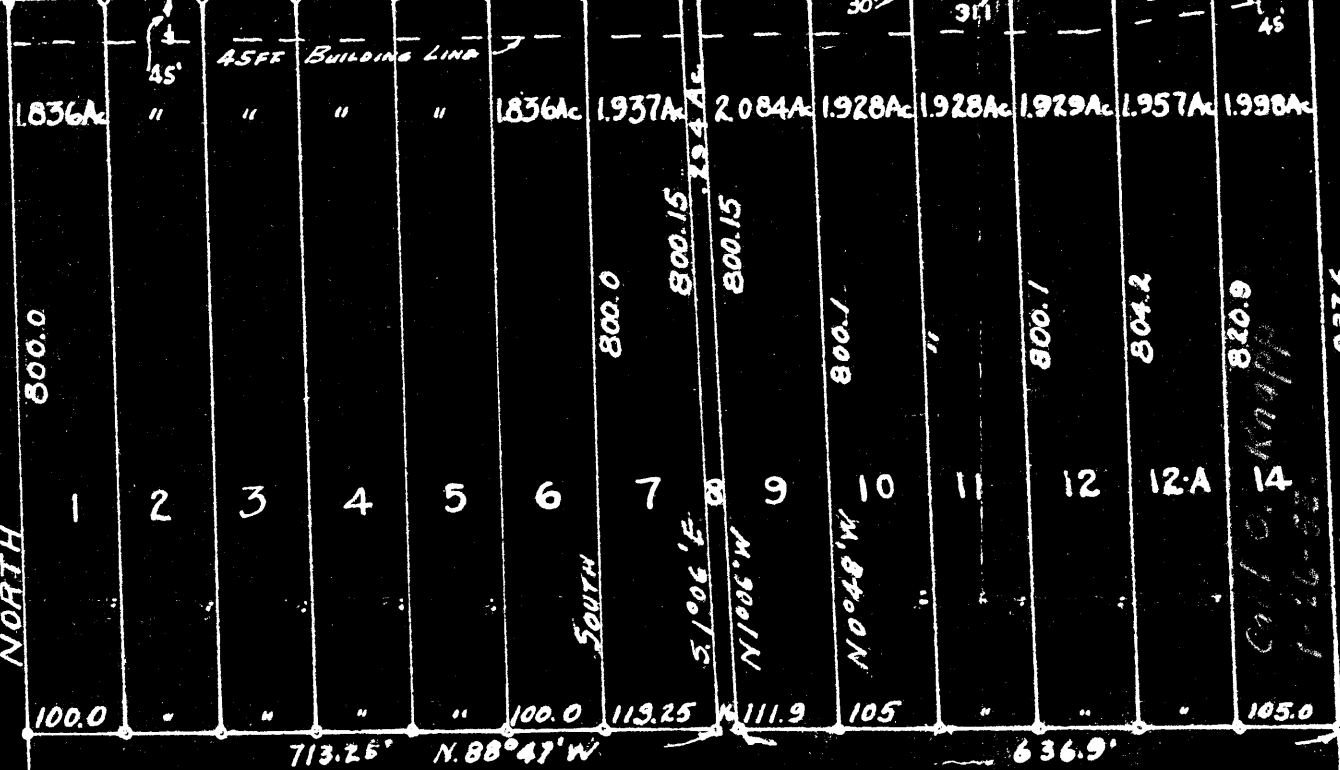 30' 311 45'
45' 45FT BUILDING LINE
1.836Ac " " " " 1.836Ac 1.937Ac .294 Ac 2.084Ac 1.928Ac 1.928Ac 1.929Ac 1.957Ac 1.998Ac
800.0 800.0 800.15 800.15 800.1 " 800.1 804.2 820.9
1 2 3 4 5 6 7 8 9 10 11 12 12-A 14
NORTH SOUTH S.1°06'E N1°06'W N0°48'W
Knapp
100.0 " " " " 100.0 113.25 111.9 105 " " " 105.0
713.25' N.88°47'W 636.9'